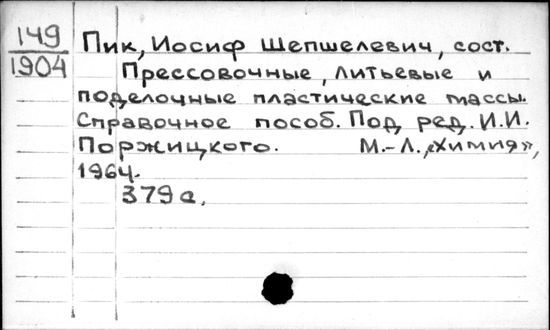 149
1904
Пик, Иосиф Шепшелевич, сост.
Прессовочные, литьевые и
поделочные пластические массы.
Справочное пособ. Под ред. И.И.
Поржицкого. М.-Л. „Химия",
1964.
379 с.